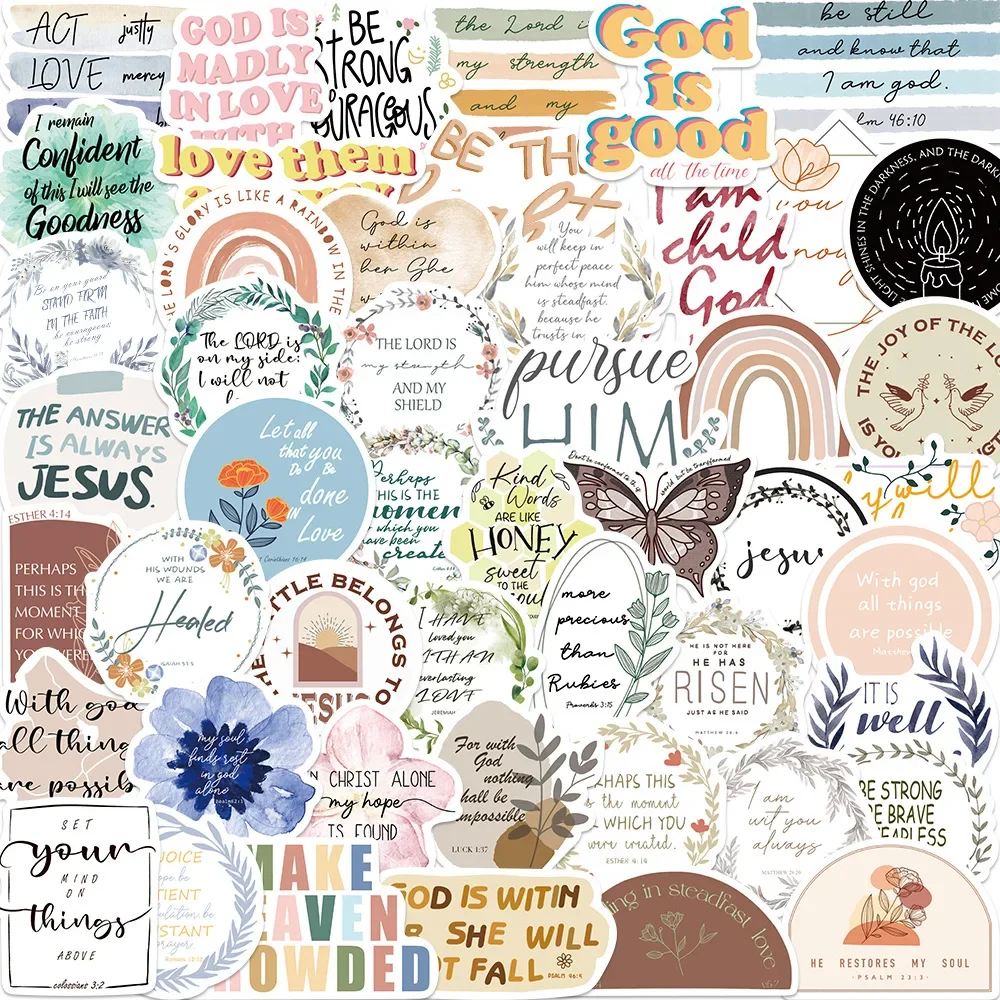 ACT justly
LOVE mercy
GOD IS
MADLY
IN LOVE
WITH
BE
STRONG
the Lord is
my strength
and my
God
is
good
all the time
be still
and know that
I am god.
lm 46:10
I remain
Confident
of this I will see the
Goodness
love them
BE TH
I am
child
God
you
THE LIGHT SHINES IN THE DARKNESS, AND THE DARK
HE LORD'S GLORY IS LIKE A RAINBOW IN THE
God is
within
her She
You
will keep in
perfect peace
him whose mind
is steadfast,
because he
trusts in
Be on your guard
STAND FIRM
IN THE FAITH
be courageous
be strong
The LORD is
on my side;
I will not
THE LORD IS
my strength
AND MY
SHIELD
pursue
HIM
THE JOY OF THE L
IS YO
NGTH
THE ANSWER
IS ALWAYS
JESUS.
Let all
that you
Do Be
done
IN
Love
Corinthians 16:14
Perhaps
THIS IS THE
moment
which you
have been
create
Kind
Words
ARE LIKE
HONEY
sweet
TO THE
soul
Don't be conformed to this
world but be transformed
jesus
y will
ESTHER 4:14
PERHAPS
THIS IS TH
MOMENT
FOR WHIC
YOU WERE
WITH
HIS WOUNDS
WE ARE
Healed
ISAIAH 53:5
TTLE BELONGS TO
JESUS
I HAVE
loved you
WITH AN
everlasting
LOVE
JEREMIAH
more
precious
than
Rubies
Proverbs 3:15
HE IS NOT HERE
FOR
HE HAS
RISEN
JUST AS HE SAID
MATTHEW 28:6
With god
all things
are possible
Matthew
IT IS
well
With god
all thing
are possib
my soul
finds rest
in god
alone
Psalm62:1
IN CHRIST ALONE
my hope
IS FOUND
For with
God
nothing
shall be
impossible
LUCK 1:37
RHAPS THIS
is the moment
WHICH YOU
were created.
ESTHER 4:14
I am
wit you
always
MATTHEW 28:20
BE STRONG
BE BRAVE
FEARLESS
SET
your
MIND
ON
things
ABOVE
colossians 3:2
OICE
hope be
TIENT
ulation, be
NSTANT
prayer
Romans 12:12
MAKE
EAVEN
OWDED
GOD IS WITIN
R SHE WILL
OT FALL
PSALM 46:5
ing in steadfast love
HE RESTORES MY SOUL
· PSALM 23:3 ·